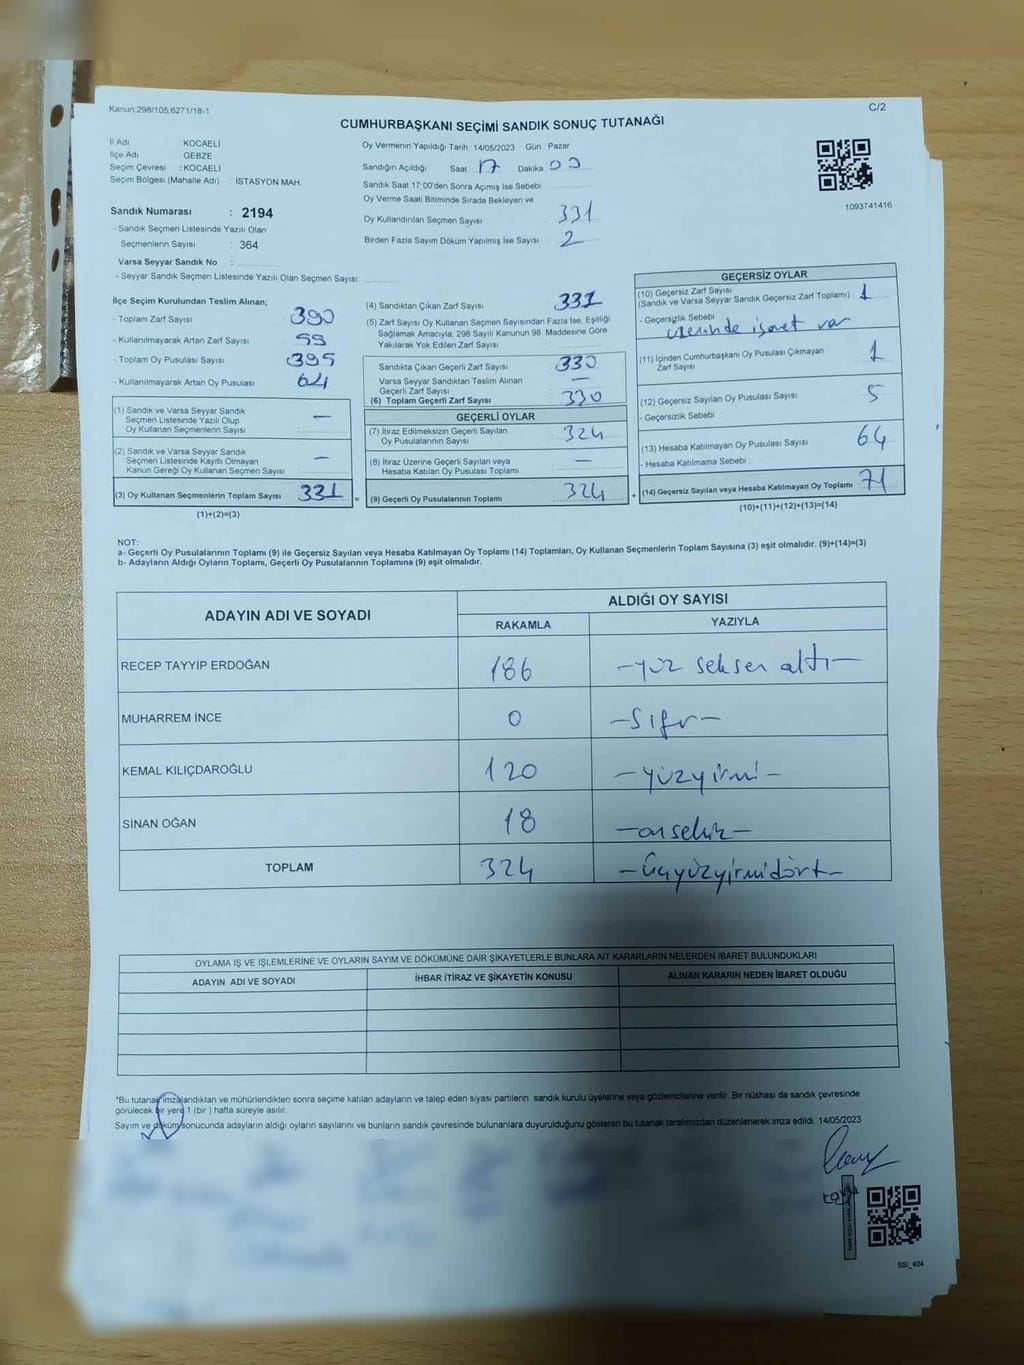 Kanun:298/105;6271/18-1
C/2
CUMHURBAŞKANI SEÇİMİ SANDIK SONUÇ TUTANAĞI
İl Adı : KOCAELİ
İlçe Adı : GEBZE
Seçim Çevresi : KOCAELİ
Seçim Bölgesi (Mahalle Adı) : İSTASYON MAH.
Sandık Numarası : 2194
- Sandık Seçmen Listesinde Yazılı Olan
Seçmenlerin Sayısı : 364
Varsa Seyyar Sandık No :
- Seyyar Sandık Seçmen Listesinde Yazılı Olan Seçmen Sayısı:
Oy Vermenin Yapıldığı Tarih : 14/05/2023 Gün : Pazar
Sandığın Açıldığı Saat : 17 Dakika : 00
Sandık Saat 17:00'den Sonra Açımış İse Sebebi :
Oy Verme Saati Bitiminde Sırada Bekleyen ve
Oy Kullandırılan Seçmen Sayısı : 331
Birden Fazla Sayım Döküm Yapılmış İse Sayısı : 2
1093741416
İlçe Seçim Kurulundan Teslim Alınan;
- Toplam Zarf Sayısı : 390
- Kullanılmayarak Artan Zarf Sayısı : 59
- Toplam Oy Pusulası Sayısı : 395
- Kullanılmayarak Artan Oy Pusulası : 64
(1) Sandık ve Varsa Seyyar Sandık
Seçmen Listesinde Yazılı Olup
Oy Kullanan Seçmenlerin Sayısı : —
(2) Sandık ve Varsa Seyyar Sandık
Seçmen Listesinde Kayıtlı Olmayan
Kanun Gereği Oy Kullanan Seçmen Sayısı : —
(3) Oy Kullanan Seçmenlerin Toplam Sayısı : 331 =
(1)+(2)=(3)
(4) Sandıktan Çıkan Zarf Sayısı : 331
(5) Zarf Sayısı Oy Kullanan Seçmen Sayısından Fazla İse, Eşitliği
Sağlamak Amacıyla, 298 Sayılı Kanunun 98. Maddesine Göre
Yakılarak Yok Edilen Zarf Sayısı :
Sandıkta Çıkan Geçerli Zarf Sayısı : 330
Varsa Seyyar Sandıktan Teslim Alınan
Geçerli Zarf Sayısı : —
(6) Toplam Geçerli Zarf Sayısı : 330
GEÇERLİ OYLAR
(7) İtiraz Edilmeksizin Geçerli Sayılan
Oy Pusulalarının Sayısı : 324
(8) İtiraz Üzerine Geçerli Sayılan veya
Hesaba Katılan Oy Pusulası Toplamı : —
(9) Geçerli Oy Pusulalarının Toplamı : 324 +
GEÇERSİZ OYLAR
(10) Geçersiz Zarf Sayısı
(Sandık ve Varsa Seyyar Sandık Geçersiz Zarf Toplamı) : 1
- Geçersizlik Sebebi : üzerinde işaret var
(11) İçinden Cumhurbaşkanı Oy Pusulası Çıkmayan
Zarf Sayısı : 1
(12) Geçersiz Sayılan Oy Pusulası Sayısı : 5
- Geçersizlik Sebebi :
(13) Hesaba Katılmayan Oy Pusulası Sayısı : 64
- Hesaba Katılmama Sebebi :
(14) Geçersiz Sayılan veya Hesaba Katılmayan Oy Toplamı : 71
(10)+(11)+(12)+(13)=(14)
NOT:
a- Geçerli Oy Pusulalarının Toplamı (9) ile Geçersiz Sayılan veya Hesaba Katılmayan Oy Toplamı (14) Toplamları, Oy Kullanan Seçmenlerin Toplam Sayısına (3) eşit olmalıdır. (9)+(14)=(3)
b- Adayların Aldığı Oyların Toplamı, Geçerli Oy Pusulalarının Toplamına (9) eşit olmalıdır.
ADAYIN ADI VE SOYADI
ALDIĞI OY SAYISI
RAKAMLA YAZIYLA
RECEP TAYYİP ERDOĞAN 186 —yüz seksen altı—
MUHARREM İNCE 0 —Sıfır—
KEMAL KILIÇDAROĞLU 120 —yüzyirmi—
SİNAN OĞAN 18 —onsekiz—
TOPLAM 324 —Üçyüzyirmidört—
OYLAMA İŞ VE İŞLEMLERİNE VE OYLARIN SAYIM VE DÖKÜMÜNE DAİR ŞİKAYETLERLE BUNLARA AİT KARARLARIN NELERDEN İBARET BULUNDUKLARI
ADAYIN ADI VE SOYADI İHBAR İTİRAZ VE ŞİKAYETİN KONUSU ALINAN KARARIN NEDEN İBARET OLDUĞU
*Bu tutanak imzalandıktan ve mühürlendikten sonra seçime katılan adayların ve talep eden siyasi partilerin sandık kurulu üyelerine veya gözlemcilerine verilir. Bir nüshası da sandık çevresinde
görülecek bir yere 1 (bir ) hafta süreyle asılır.
Sayım ve döküm sonucunda adayların aldığı oyların sayılarını ve bunların sandık çevresinde bulunanlara duyurulduğunu gösteren bu tutanak tarafımızdan düzenlenerek imza edildi. 14/05/2023
SSİ_404